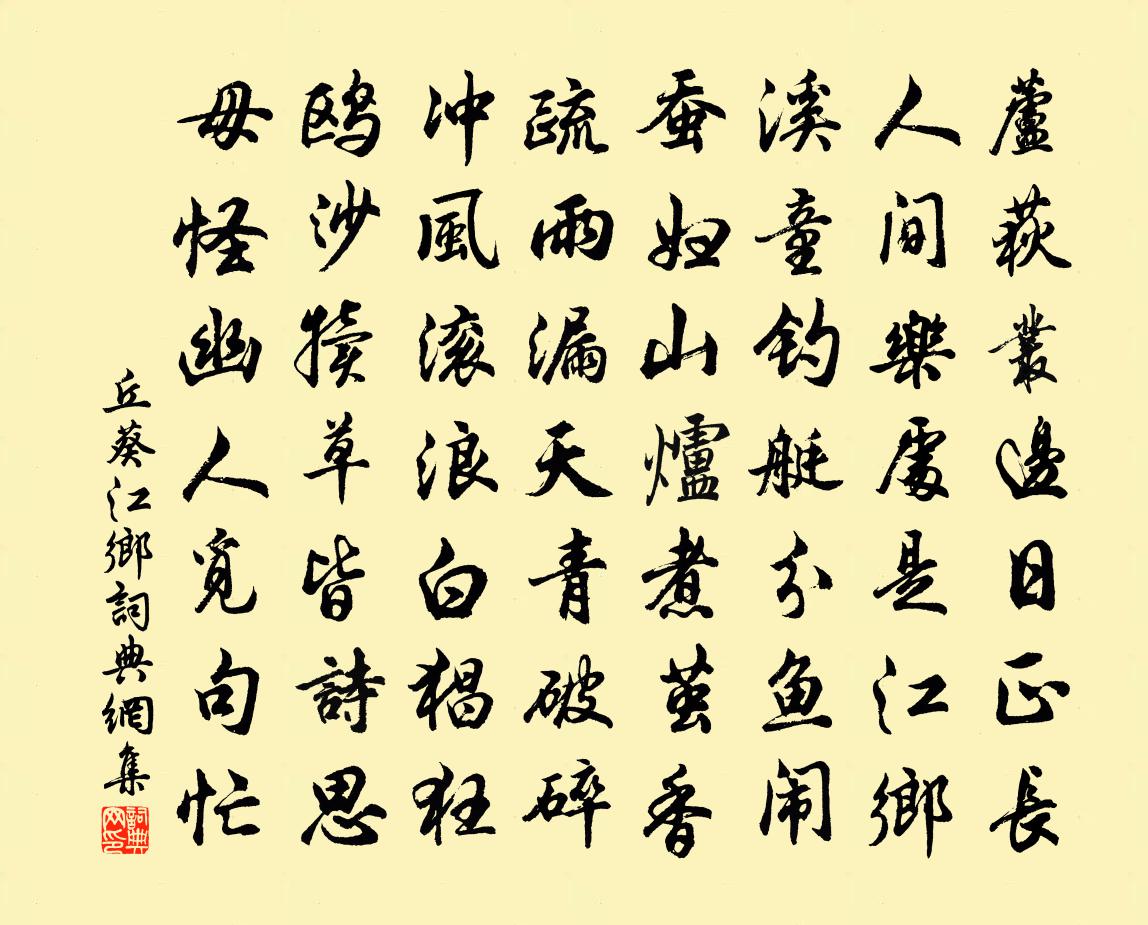 蘆荻叢邊日正長
人间樂處是江鄉
溪童釣艇分鱼闹
蚕妇山爐煮茧香
疏雨漏天青破碎
冲風滚浪白猖狂
鸥沙犢草皆詩思
毋怪幽人覓句忙
丘葵江鄉詞典網集
詞典网印